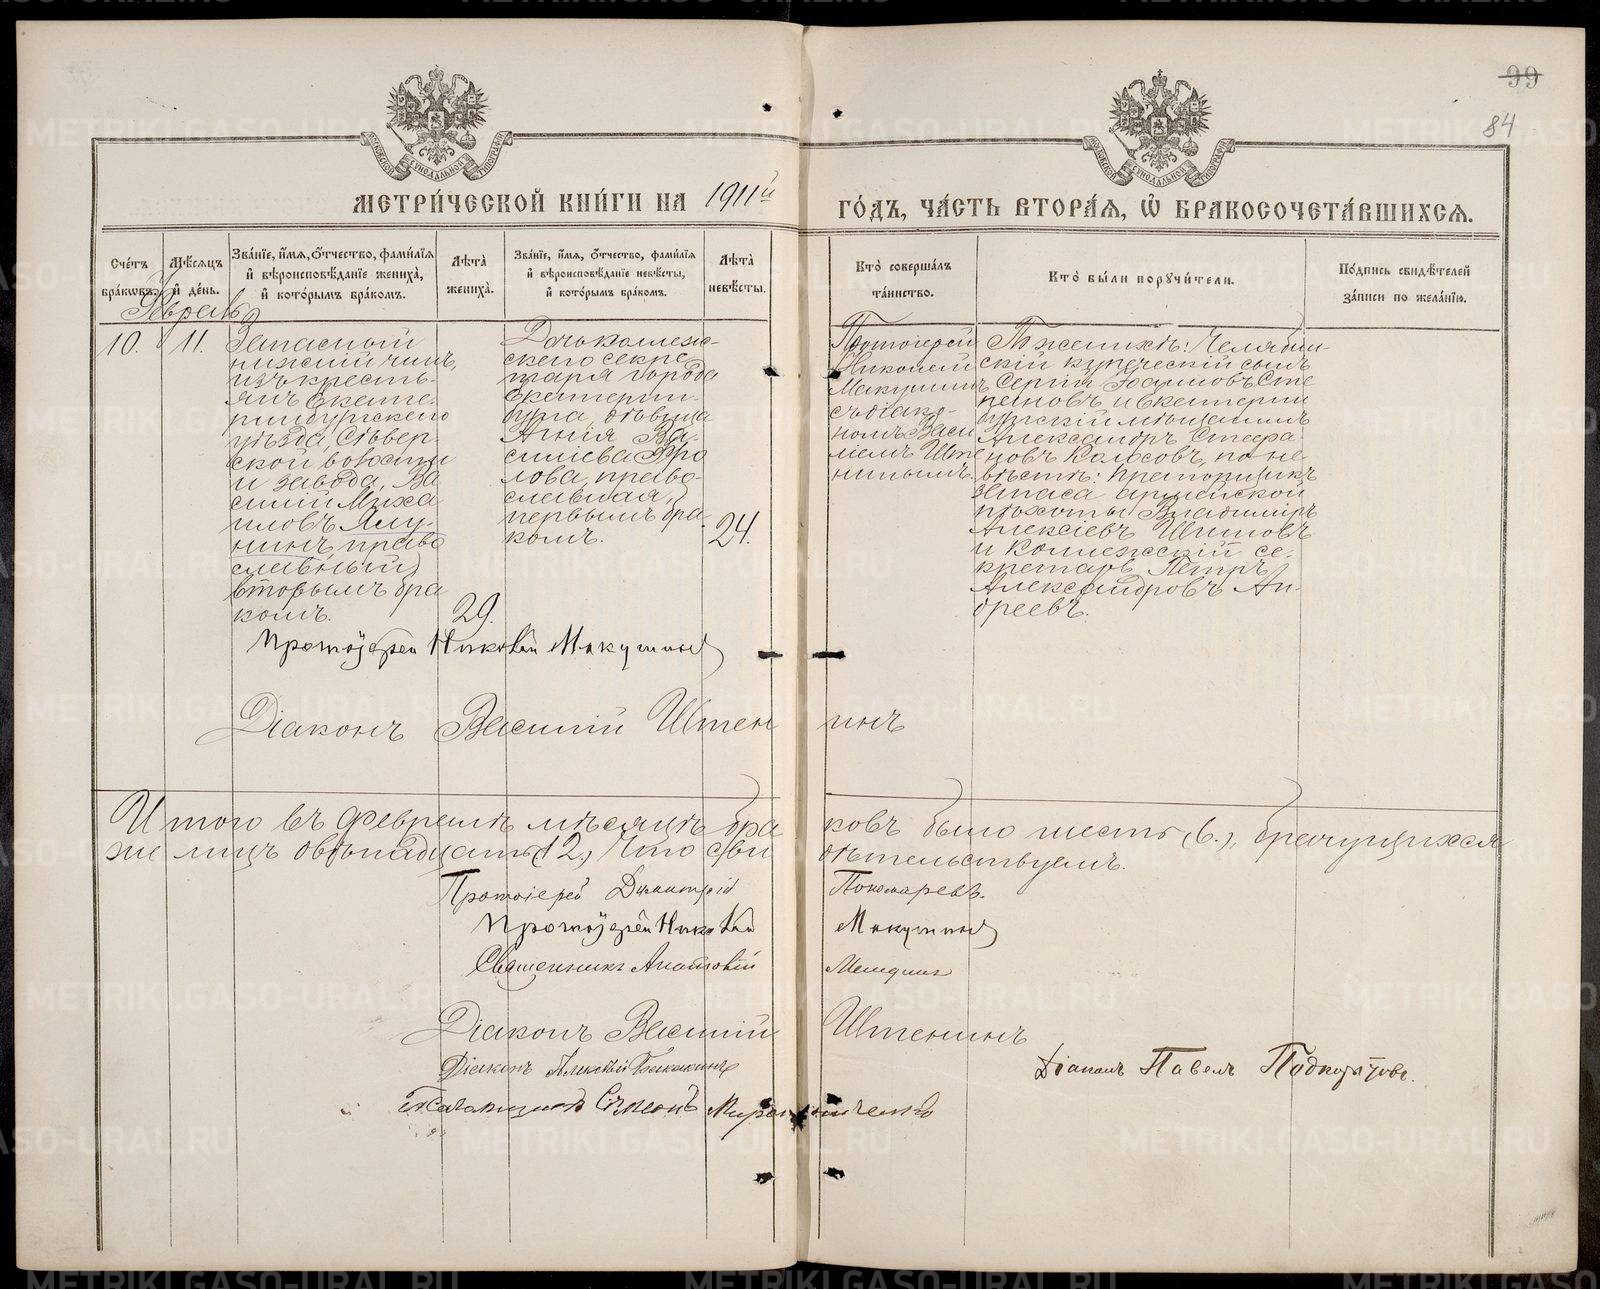 99
84
МЕТРИ́ЧЕСКОЙ КНИ́ГИ НА 1911й ГО́ДЪ, ЧА́СТЬ ВТОРА́Я, Ѡ БРАКОСОЧЕТА́ВШИХСЯ.
Сче́тъ бра́ковъ.
Мѣ́сяцъ и де́нь.
Зва́нїе, и́мя, ѻ́тчество, фами́лїя
и вѣроисповѣ́данїе жениха̀,
и кото́рымъ бра́комъ.
Лѣта̀
жениха̀.
Зва́нїе, и́мя, ѻ́тчество, фами́лїя
и вѣроисповѣ́данїе невѣ́сты,
и кото́рымъ бра́комъ.
Лѣта̀
невѣ́сты.
Кто̀ соверша́лъ
та́инство.
Кто̀ бы́ли поручи́тели.
По́дпись свидѣ́телей
за́писи по жела́нїю.
Февраль
10.
11.
Запасный
нижній чинъ,
изъ кресть-
янъ Екате-
ринбургскаго
уѣзда, Сѣвер-
ской волости
и завода, Ва
силій Миха
иловъ Ялу-
нинъ, право
славный,
вторымъ бра
комъ.
29.
Дочь коллеж-
скаго секре
таря города
Екатерин-
бурга, дѣвица
Агнія Ва-
сильева Фро
лова, право-
славная,
первымъ бра
комъ.
24.
Протоіерей
Николай
Макушинъ
съ діако-
номъ Васи
ліемъ Ште
нинымъ.
По женихѣ: Челябин-
скій купеческій сынъ
Сергій Іоанновъ Сте
пановъ и екатерин
бургскій мѣщанинъ
Александръ Стефа-
новъ Колосовъ, по не-
вѣстѣ: прапорщикъ
запаса армейской
пѣхоты Владиміръ
Алексіевъ Шитовъ
и коллежскій се-
кретарь Петръ
Александровъ Ан-
дреевъ.
Протоіерей Николай Макушинъ
Діаконъ Василій Штенинъ
Итого въ февралѣ мѣсяцѣ браковъ было шесть (6.), брачущихся
же лицъ двѣнадцать (12.) Что свидѣтельствуемъ.
Протоіерей Димитрій Пономаревъ.
Протоіерей Николай Макушинъ
Священникъ Анатолій
Діаконъ Василій Штенинъ
Діаконъ Алексѣй
Діаконъ Павелъ
Псаломщикъ Симеонъ